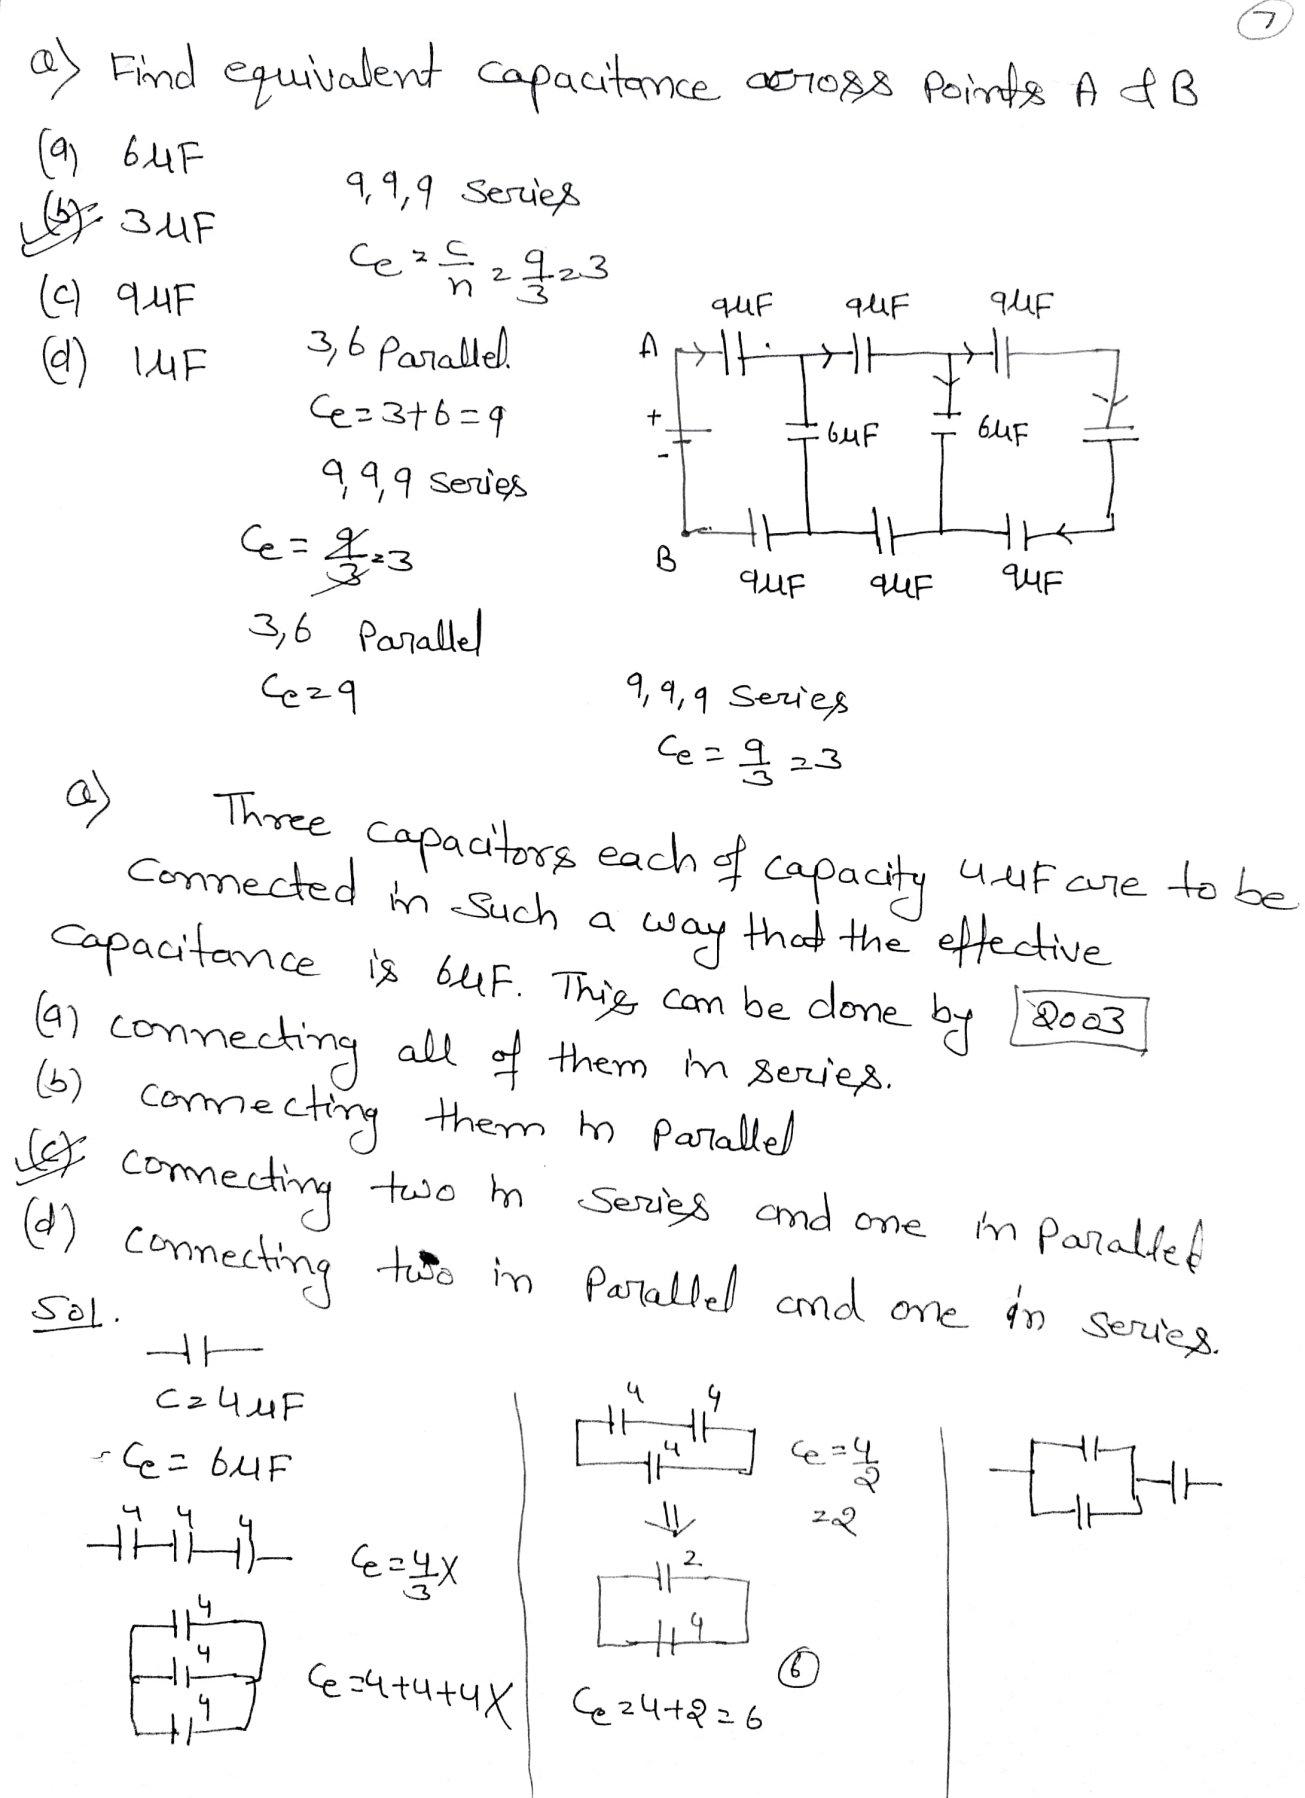 7
Q) Find equivalent capacitance across points A & B
(a) 6µF
(b) 3µF
(c) 9µF
(d) 1µF
9,9,9 series
Ce = C/n = 9/3 = 3
3,6 Parallel.
Ce = 3+6 = 9
9,9,9 series
Ce = 9/3 = 3
3,6 Parallel
Ce = 9
9µF 9µF 9µF
A
+
-
6µF 6µF
B
9µF 9µF 9µF
9,9,9 series
Ce = 9/3 = 3
Q) Three capacitors each of capacity 4µF are to be
connected in such a way that the effective
capacitance is 6µF. This can be done by 2003
(a) connecting all of them in series.
(b) connecting them in parallel
(c) connecting two in series and one in parallel
(d) connecting two in parallel and one in series.
Sol.
C = 4µF
Ce = 6µF
4 4 4
Ce = 4/3 X
4
4
4
Ce = 4+4+4 X
4 4
4
Ce = 4/2
= 2
2
4
6
Ce = 4+2 = 6